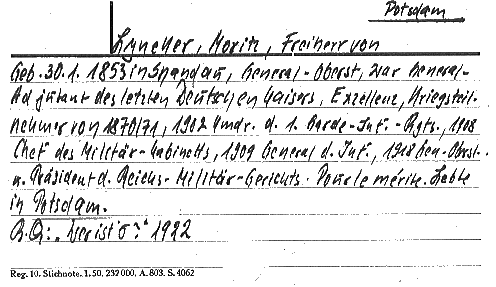 Potsdam
Lyncker, Moritz, Freiherr von
Geb. 30.1.1853 in Spandau, General-Oberst, war General-
Adjutant des letzten Deutschen Kaisers, Exzellenz, Kriegsteil-
nehmer von 1870/71, 1902 Kmdr. d. 1. Garde-Inf.-Rgts., 1908
Chef des Militär-Kabinetts, 1909 General d. Inf., 1918 Gen.-Oberst.
u. Präsident d. Reichs-Militär-Gerichts. Pour le mérite. Lebte
in Potsdam.
R.Q.: „Wer ist's?" 1922
Reg. 10. Stichnote. 1. 50. 232 000. A. 803. S. 4062